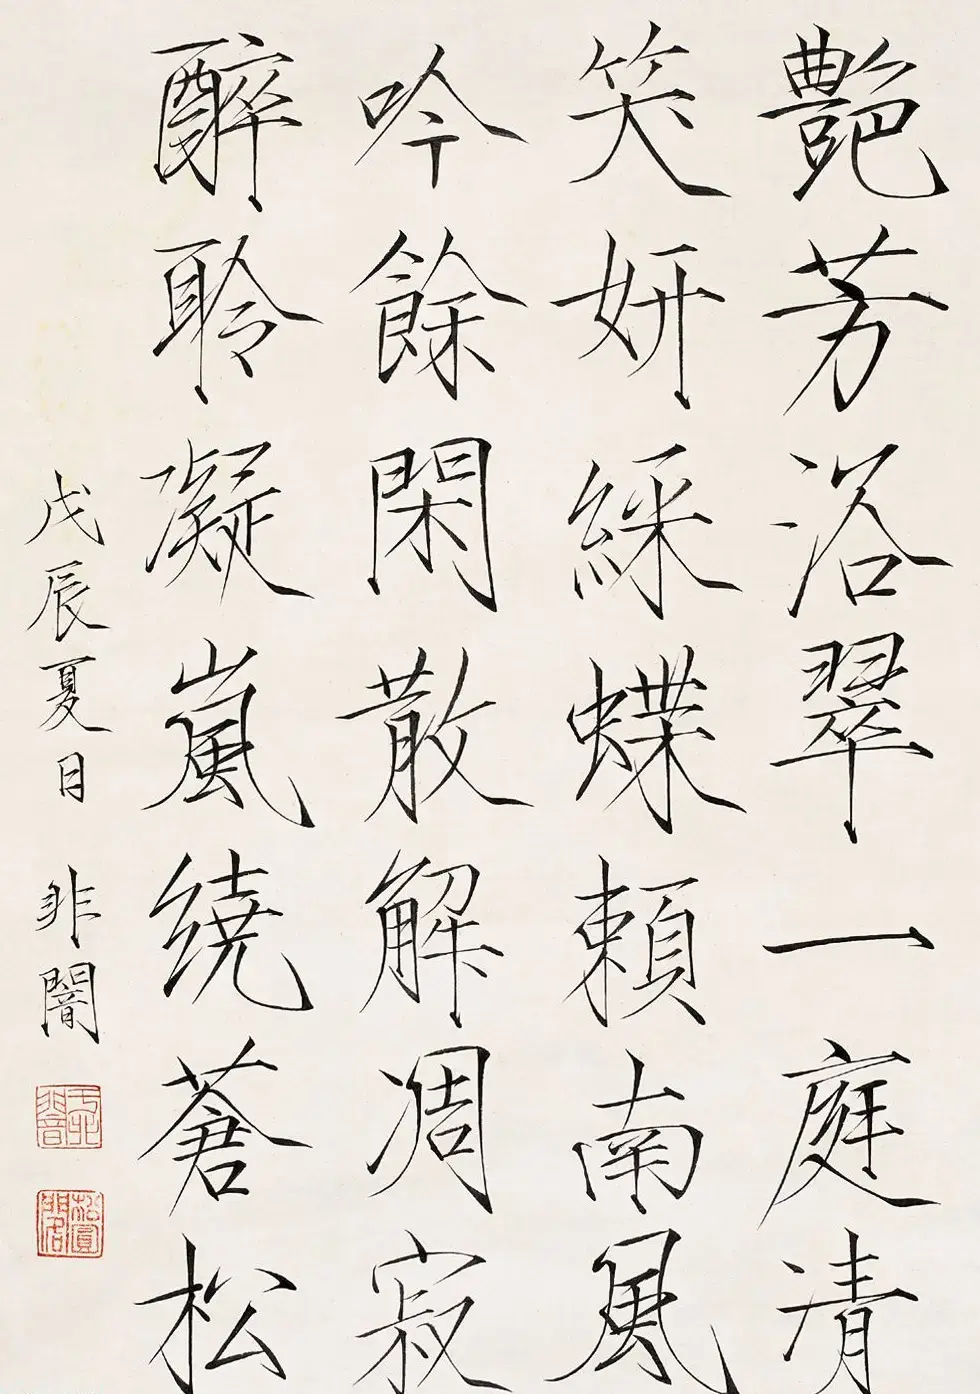 艷芳浴翠一庭清
笑妍綵蝶賴南風
吟餘閑散解凋寂
醉聆凝嵐繞蒼松
戊辰夏日 非闇
于非闇